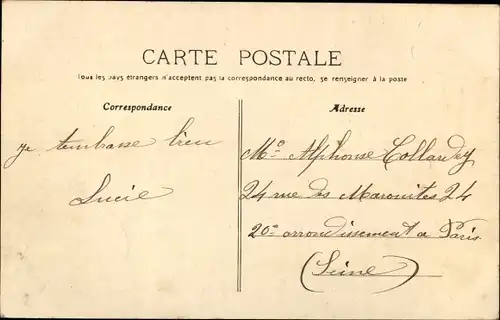 CARTE POSTALE
Tous les pays étrangers n'acceptent pas la correspondance au recto, se renseigner à la poste
Correspondance
je tembrasse bien
Lucie
Adresse
Mr Alphonse Collardey
24 rue des Maronites 24
20e arrondissement a Paris
(Seine)